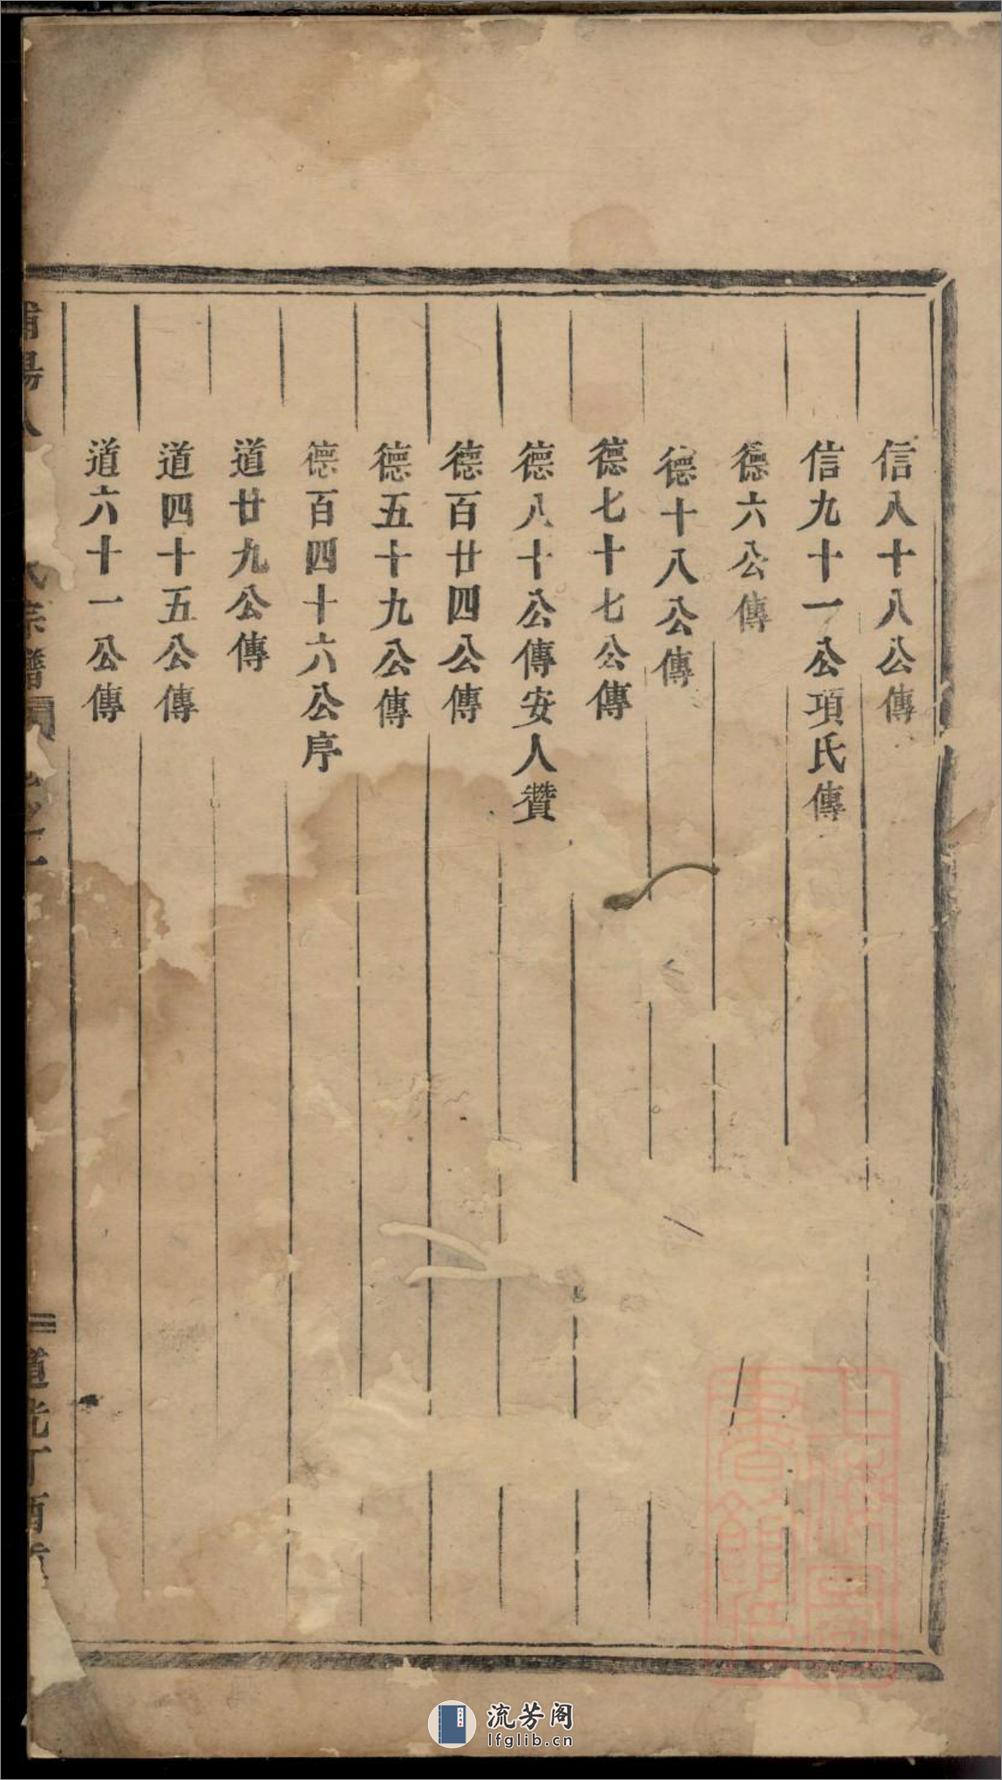 信八十八公傳
信九十一公項氏傳
德六公傳
德十八公傳
德七十七公傳
德八十公傳安人贊
德百廿四公傳
德五十九公傳
德百四十六公序
道廿九公傳
道四十五公傳
道六十一公傳
氏宗譜
道光丁酉
上海圖書館藏
流芳阁
lfglib.cn